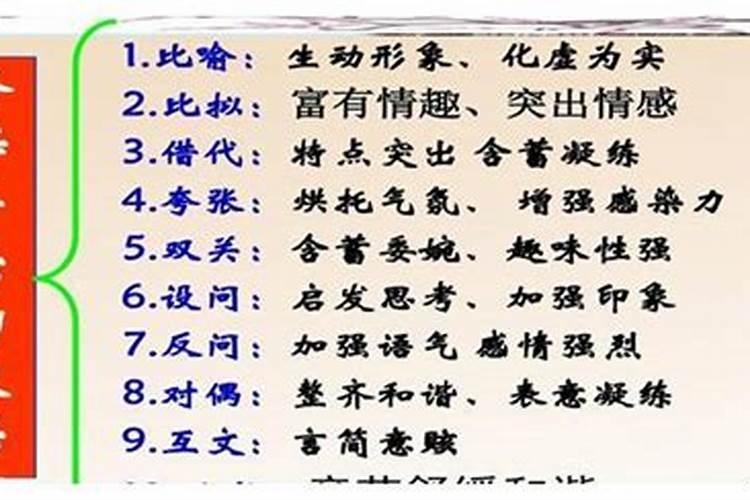 1.比喻：生动形象、化虚为实
2.比拟：富有情趣、突出情感
3.借代：特点突出 含蓄凝练
4.夸张：烘托气氛、增强感染力
5.双关：含蓄委婉、趣味性强
6.设问：启发思考、加强印象
7.反问：加强语气 感情强烈
8.对偶：整齐和谐、表意凝练
9.互文：言简意赅